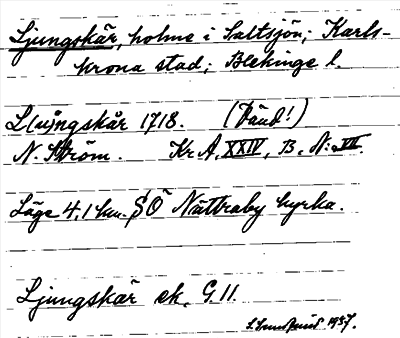 Ljungskär, holme i Saltsjön; Karls-
krona stad; Blekinge l.
L(u)ngskär 1718. (Däud!)
N. Ström. Kr. A, XXIV, B, N: VII.
Läge 4,1 km. SÖ Nättraby kyrka.
Ljungskär ek. G. 11.
1937.